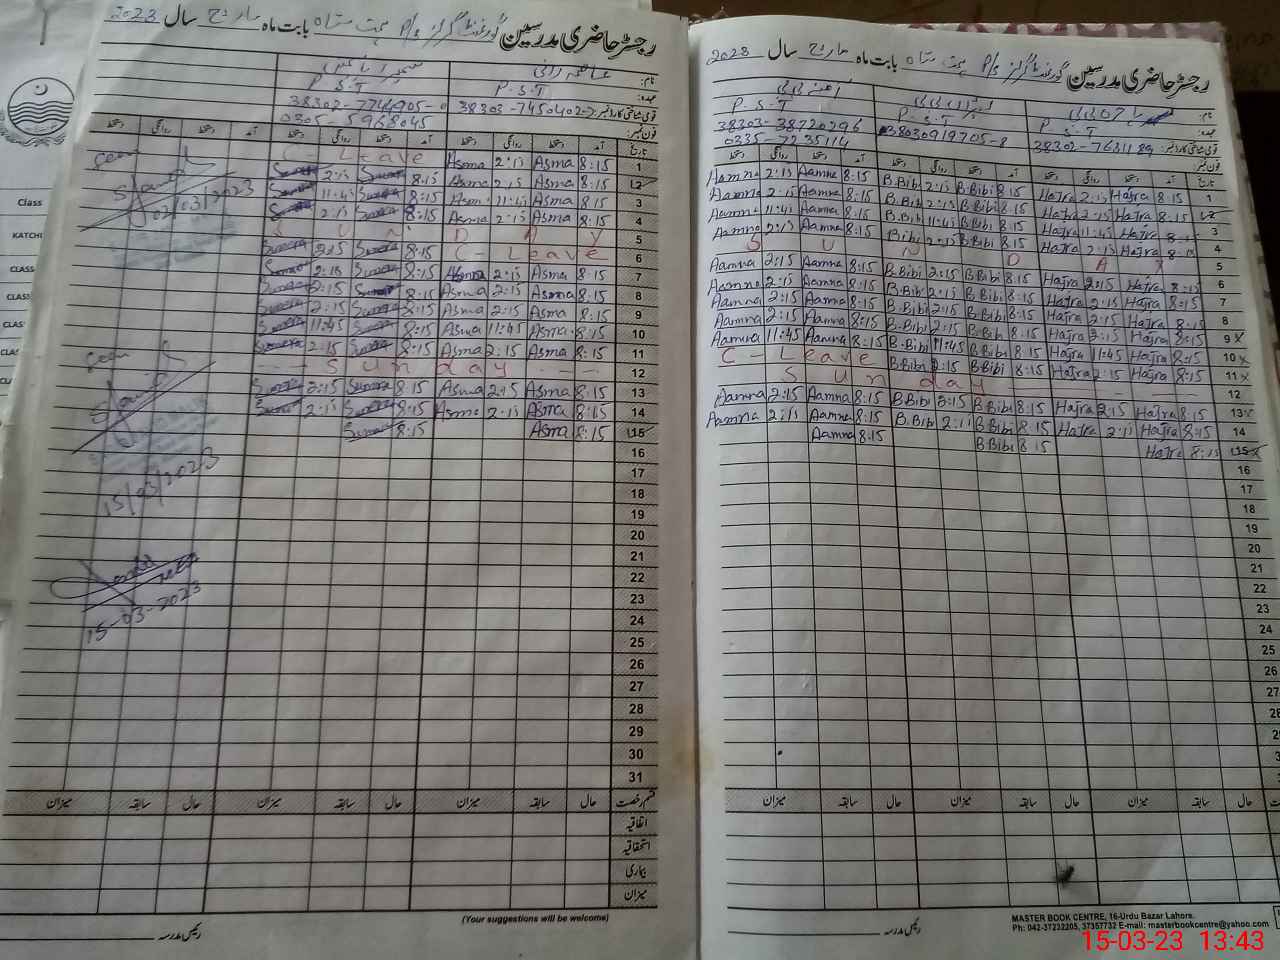 رجسٹر حاضری مدرسین گورنمنٹ گرلز P/s ہمت شاہ بابت ماہ مارچ سال 2023
نام: عاصمہ رانی
عہدہ: P.S.T P.S.T
قومی شناختی کارڈ نمبر: 38303-7450402-2
فون نمبر: 0305-5968045
تاریخ آمد دستخط روانگی دستخط آمد دستخط روانگی دستخط آمد دستخط روانگی دستخط
1 8:15 Asma 2:15 Asma C-Leave
2 8:15 Asma 2:15 Asma 8:15 Sumera 2:15 Sumera
3 8:15 Asma 11:45 Asma 8:15 Sumera 11:45 Sumera
4 8:15 Asma 2:15 Asma 8:15 Sumera 2:15 Sumera
5 SUNDAY
6 C-Leave 8:15 Sumera 2:15 Sumera
7 8:15 Asma 2:15 Asma 8:15 Sumera 2:15 Sumera
8 8:15 Asma 2:15 Asma 8:15 Sumera 2:15 Sumera
9 8:15 Asma 2:15 Asma 8:15 Sumera 2:15 Sumera
10 8:15 Asma 11:45 Asma 8:15 Sumera 11:45 Sumera
11 8:15 Asma 2:15 Asma 8:15 Sumera 2:15 Sumera
12 Sunday
13 8:15 Asma 2:15 Asma 8:15 Sumera 2:15 Sumera
14 8:15 Asma 2:15 Asma 8:15 Sumera 2:15 Sumera
15 8:15 Asma 8:15 Sumera
16
17
18
19
20
21
22
23
24
25
26
27
28
29
30
31
Seen
02/03/2023
Seen
15/03/2023
15-03-2023
قسم رخصت حال سابقہ میزان حال سابقہ میزان حال سابقہ میزان
اتفاقیہ
استحقاقیہ
بیماری
میزان
(Your suggestions will be welcome)
رئیس مدرسہ
رجسٹر حاضری مدرسین گورنمنٹ گرلز P/s ہمت شاہ بابت ماہ مارچ سال 2023
نام:
عہدہ: P.S.T P.S.T P.S.T
قومی شناختی کارڈ نمبر: 38303919705-8 38303-38720296
فون نمبر: 0335-7235114
تاریخ آمد دستخط روانگی دستخط آمد دستخط روانگی دستخط آمد دستخط روانگی دستخط
1 8:15 Hajra 2:15 Hajra 8:15 B.Bibi 2:15 B.Bibi 8:15 Aamna 2:15 Aamna
2 8:15 Hajra 2:15 Hajra 8:15 B.Bibi 2:15 B.Bibi 8:15 Aamna 2:15 Aamna
3 8:15 Hajra 11:45 Hajra 8:15 B.Bibi 11:45 B.Bibi 8:15 Aamna 11:45 Aamna
4 8:15 Hajra 2:15 Hajra 8:15 B.Bibi 2:15 Bibi 8:15 Aamna 2:15 Aamna
5 SUNDAY
6 8:15 Hajra 2:15 Hajra 8:15 B.Bibi 2:15 B.Bibi 8:15 Aamna 2:15 Aamna
7 8:15 Hajra 2:15 Hajra 8:15 B.Bibi 2:15 B.Bibi 8:15 Aamna 2:15 Aamna
8 8:15 Hajra 2:15 Hajra 8:15 B.Bibi 2:15 B.Bibi 8:15 Aamna 2:15 Aamna
9 8:15 Hajra 2:15 Hajra 8:15 B.Bibi 2:15 B.Bibi 8:15 Aamna 2:15 Aamna
10 8:15 Hajra 11:45 Hajra 8:15 B.Bibi 11:45 B.Bibi 8:15 Aamna 11:45 Aamna
11 8:15 Hajra 2:15 Hajra 8:15 B.Bibi 2:15 B.Bibi C-Leave
12 Sunday
13 8:15 Hajra 2:15 Hajra 8:15 B.Bibi 2:15 B.Bibi 8:15 Aamna 2:15 Aamna
14 8:15 Hajra 2:15 Hajra 8:15 B.Bibi 2:15 B.Bibi 8:15 Aamna 2:15 Aamna
15 8:15 Hajra 8:15 B.Bibi 8:15 Aamna
16
17
18
19
20
21
22
23
24
25
26
27
28
حال سابقہ میزان حال سابقہ میزان حال سابقہ میزان
MASTER BOOK CENTRE, 16-Urdu Bazar Lahore.
Ph: 042-37232205, 37357732 E-mail: masterbookcentre@yahoo.com
رئیس مدرسہ
15-03-23 13:43
Class
KATCHI
CLASS
CLASS
CLASS